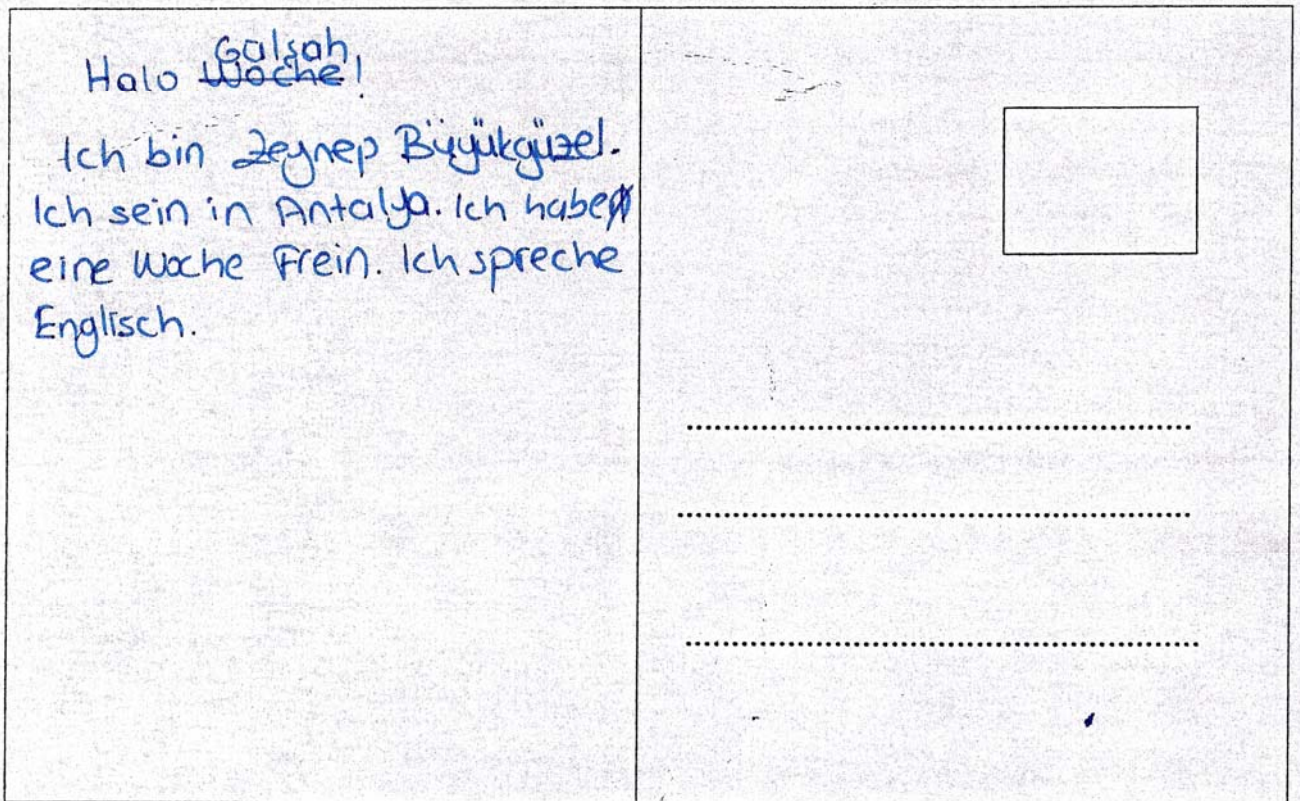 Halo Gülşah!
Ich bin Zeynep Büyükgüzel.
Ich sein in Antalya. Ich habe
eine Woche Frein. Ich spreche
Englisch.